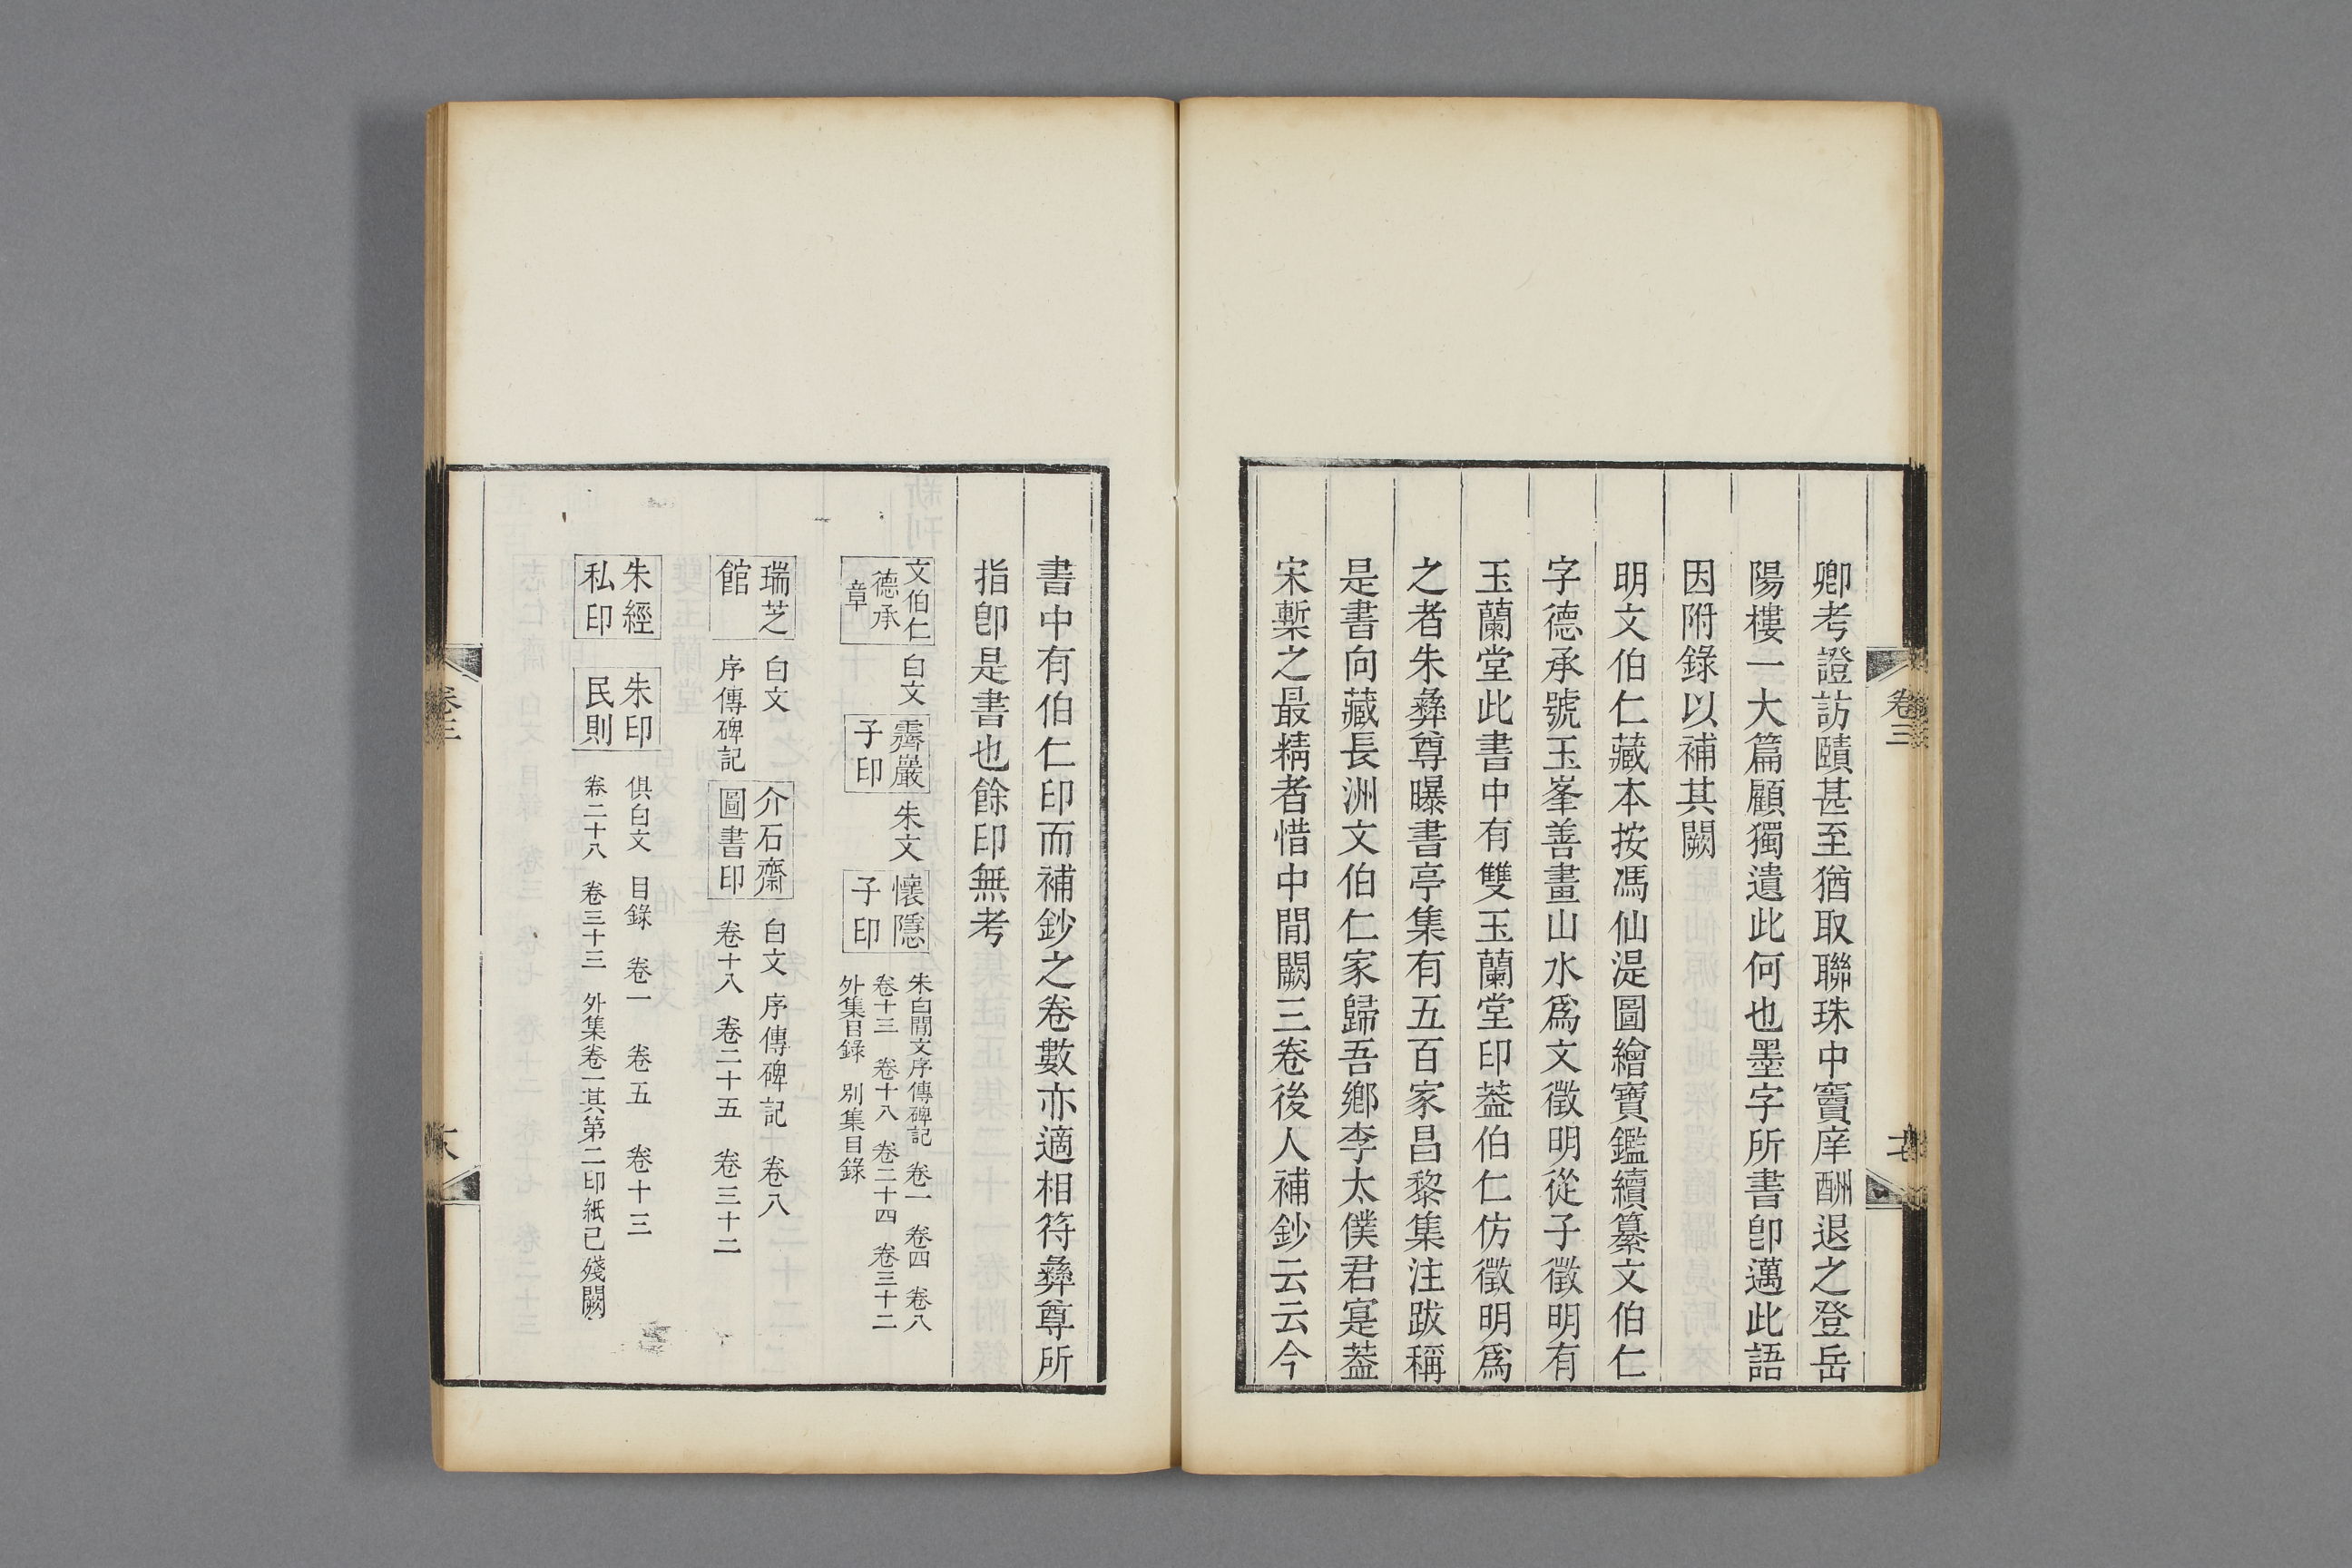 卿考證訪賾甚至猶取聯珠中竇庠酬退之登岳
陽樓一大篇顧獨遺此何也墨字所書卽邁此語
因附錄以補其闕
明文伯仁藏本按馮仙湜圖繪寶鑑續纂文伯仁
字德承號玉峯善畫山水爲文徵明從子徵明有
玉蘭堂此書中有雙玉蘭堂印葢伯仁仿徵明爲
之者朱彝尊曝書亭集有五百家昌黎集注跋稱
是書向藏長洲文伯仁家歸吾鄕李太僕君寔葢
宋槧之最精者惜中閒闕三卷後人補鈔云云今
卷三
書中有伯仁印而補鈔之卷數亦適相符彝尊所
指卽是書也餘印無考
文伯仁
德承
章
白文
霽巖
子印
朱文
懷隱
子印
朱白閒文序傳碑記 卷一 卷四 卷八
卷十三 卷十八 卷二十四 卷三十二
外集目錄 別集目錄
瑞芝
館
白文
序傳碑記
介石齋
圖書印
白文 序傳碑記 卷八
卷十八 卷二十五 卷三十二
朱經
私印
朱印
民則
俱白文 目錄 卷一 卷五 卷十三
卷二十八 卷三十三 外集卷一其第二印紙已殘闕
卷三